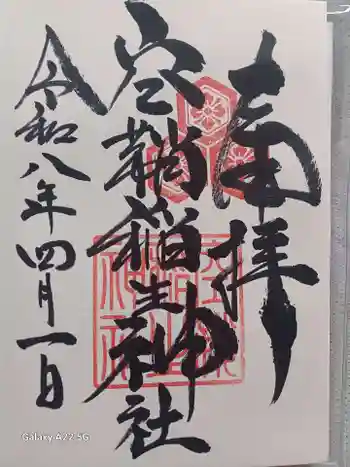 奉拝
穴鞘稲生神社
令和八年四月一日
Galaxy A22 5G